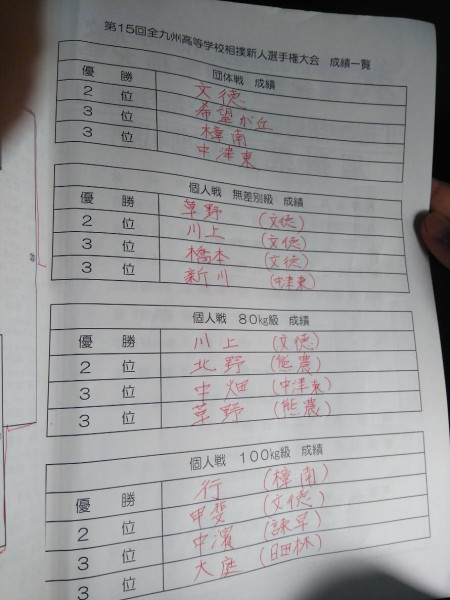 第15回全九州高等学校相撲新人選手権大会　成績一覧
団体戦　成績
優　勝　文徳
2　位　希望が丘
3　位　樟南
3　位　中津東
個人戦　無差別級　成績
優　勝　草野　(文徳)
2　位　川上　(文徳)
3　位　橋本　(文徳)
3　位　新川　(中津東)
個人戦　80㎏級　成績
優　勝　川上　(文徳)
2　位　北野　(熊農)
3　位　中畑　(中津東)
3　位　草野　(熊農)
個人戦　100㎏級　成績
優　勝　行　(樟南)
2　位　甲斐　(文徳)
3　位　中濱　(諫早)
3　位　大庭　(日田林)